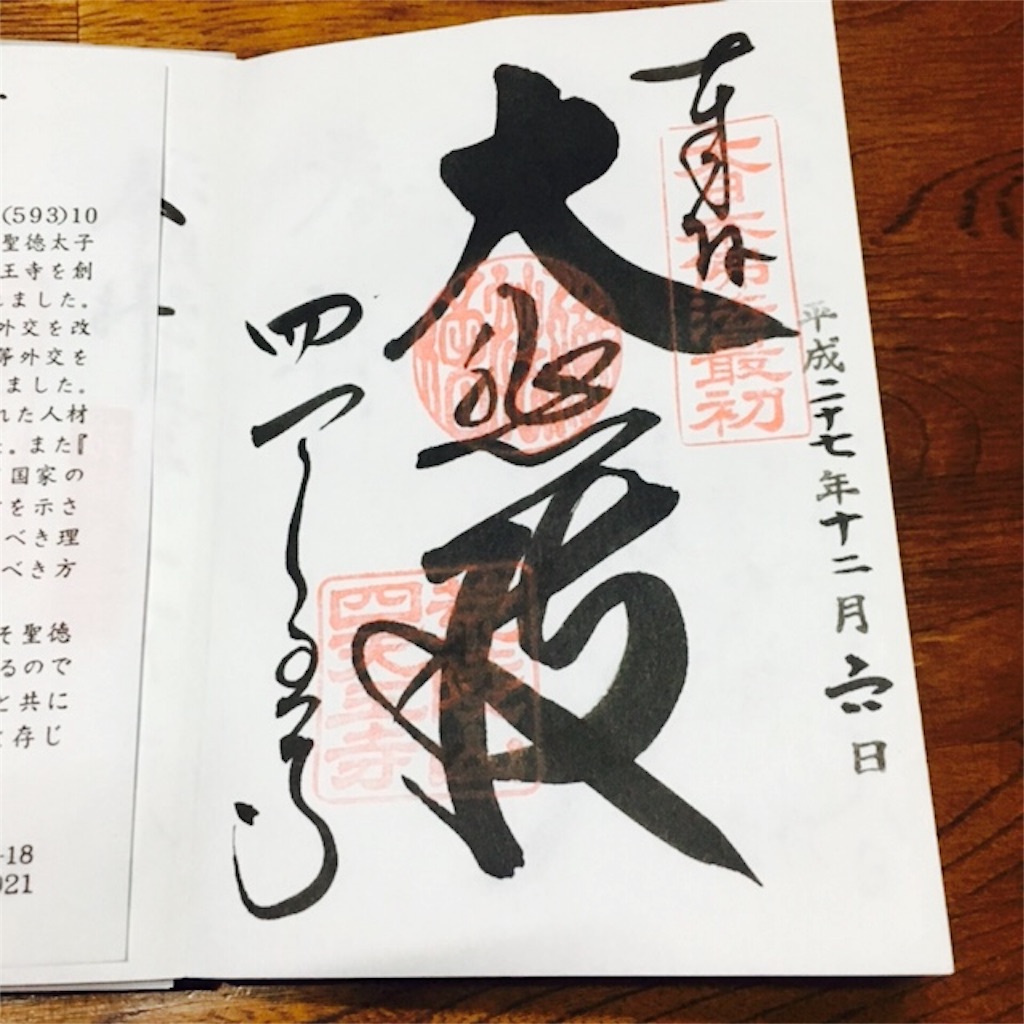 奉拝
大日本佛法最初
平成二十七年十二月六日
大悲殿
四天王寺
荒陵山
四天王寺
(593)10
聖徳太子
王寺を創
れました。
外交を改
等外交を
ました。
れた人材
。また『
国家の
を示さ
べき理
べき方
そ聖徳
るので
と共に
存じ
-18
021